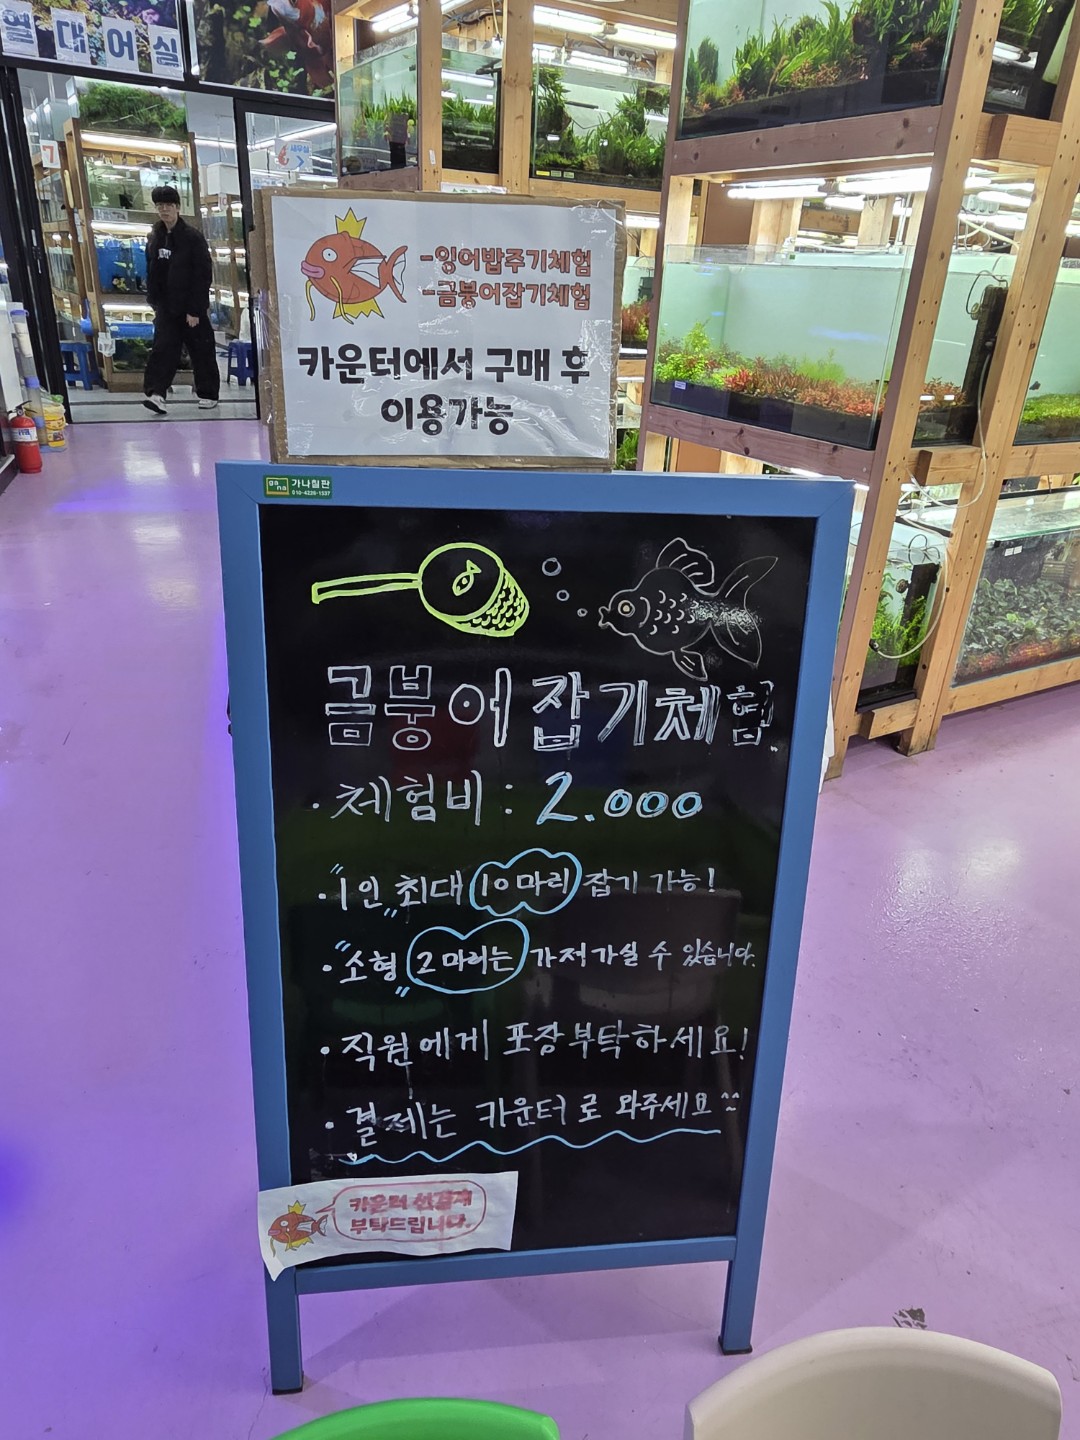 열대어실
7
새우실
-잉어밥주기체험
-금붕어잡기체험
카운터에서 구매 후
이용가능
gana 가나칠판
010-4226-1337
금붕어잡기체험
· 체험비 : 2.000
· "1인" 최대 10마리 잡기 가능!
· "소형" 2마리는 가져가실 수 있습니다.
· 직원에게 포장부탁하세요!
· 결제는 카운터로 와주세요^^
카운터 선결제
부탁드립니다.